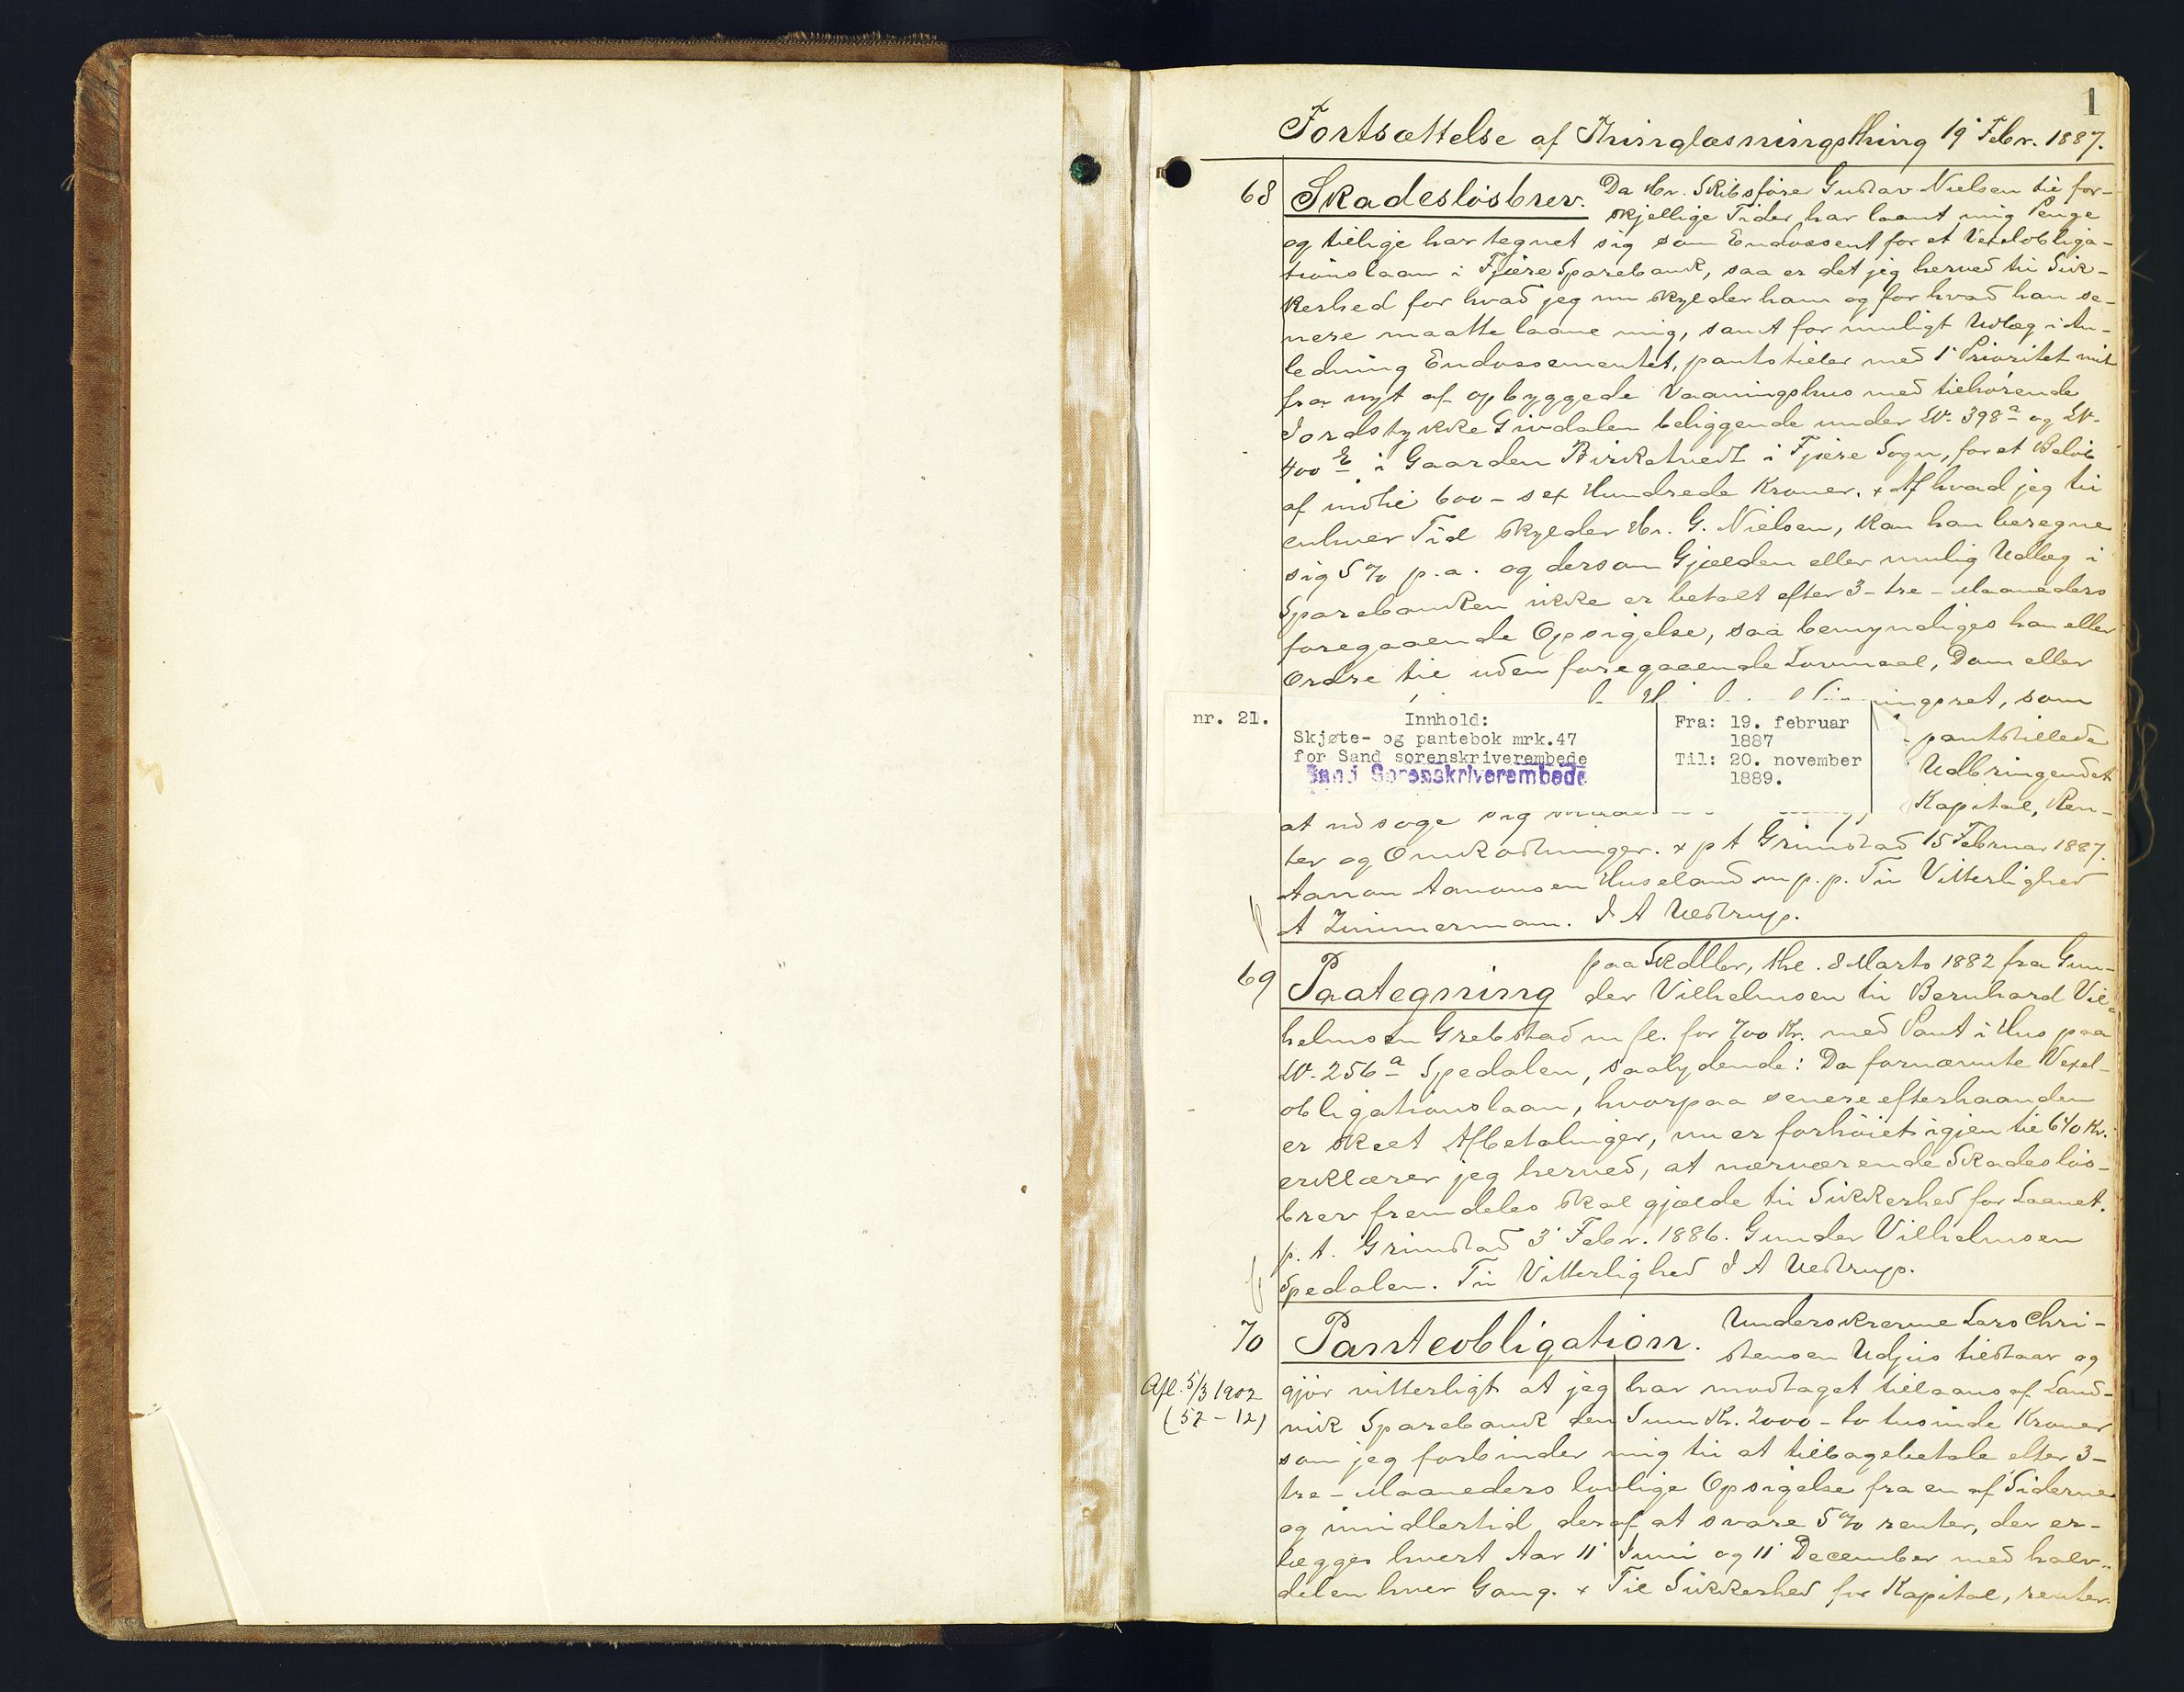 1
Fortsættelse af Thinglæsningsthing 19' Febr. 1887.
68 Skadesløsbrev. Da Hr. Skibsfører Gustav Nielsen til for-
skjellige Tider har laant mig Penge
og tillige har tegnet sig som Endossent for et Vexelobliga-
tionslaan i Fjære Sparebank, saa er det jeg herved til Sik-
kerhed for hvad jeg nu skylder ham og for hvad han se-
nere maatte laane mig, samt for muligt Udlæg i An-
ledning Endossementet, pantstiller med 1' Prioritet mit
fra nyt af opbyggede Vaaningshus med tilhørende
Jordstykke Givdalen beliggende under LN. 398ª og LN.
400 E i Gaarden Birketvedt i Fjære Sogn, for et Beløb
af indtil 600 - sex Hundrede Kroner. × Af hvad jeg til
enhver Tid skylder Hr. G. Nielsen, kan han beregne
sig 5% p.a. og dersom Gjælden eller mulig Udlæg i
Sparebanken ikke er betalt efter 3 - tre - Maaneders
foregaaende Opsigelse, saa bemyndiges han eller
Ordre til uden foregaaende Lovmaal, Dom eller
ingsret, som
pantstillede
Udbringendet
Kapital, Ren-
nr. 21.
Innhold:
Skjøte- og pantebok mrk.47
for Sand sorenskriverembede
Sand Sorenskriverembede
Fra: 19. februar
1887
Til: 20. november
1889.
at udsøge sig
ter og Omkostninger. × p t Grimstad 15 Februar 1887.
Aanon Aanonsen Huseland m p. p. Til Vitterlighed
A Zimmermann. J A Uedtrup.
69 Paategning paa Skdlbr, thl. 8 Marts 1882 fra Gun-
der Vilhelmsen til Bernhard Vil-
helmsen Grebstad m fl. for 700 Kr. med Pant i Hus paa
LN. 256ª Spedalen, saalydende: Da fornævnte Vexel-
obligationslaan, hvorpaa senere efterhaanden
er skeet Afbetalinger, nu er forhøiet igjen til 640 Kr.
erklærer jeg herved, at nærværende Skadesløs-
brev fremdeles skal gjælde til Sikkerhed for Laanet.
p. t. Grimstad 3' Febr. 1886. Gunder Vilhelmsen
Spedalen. Til Vitterlighed J A Uedtrup.
70 Panteobligation. Underskrevne Lars Chri-
stensen Udjus tilstaar og
Afl. 5/3 1902
(52 - 12)
gjør vitterligt at jeg har modtaget tillaans af Land-
vik Sparebank den Sum Kr. 2000 - to tusinde Kroner
som jeg forbinder mig til at tilbagebetale efter 3 -
tre - Maaneders lovlige Opsigelse fra en af Siderne
og imidlertid deraf at svare 5% renter, der er-
lægges hvert Aar 11' Juni og 11' December med halv-
delen hver Gang. × Til Sikkerhed for Kapital, renter